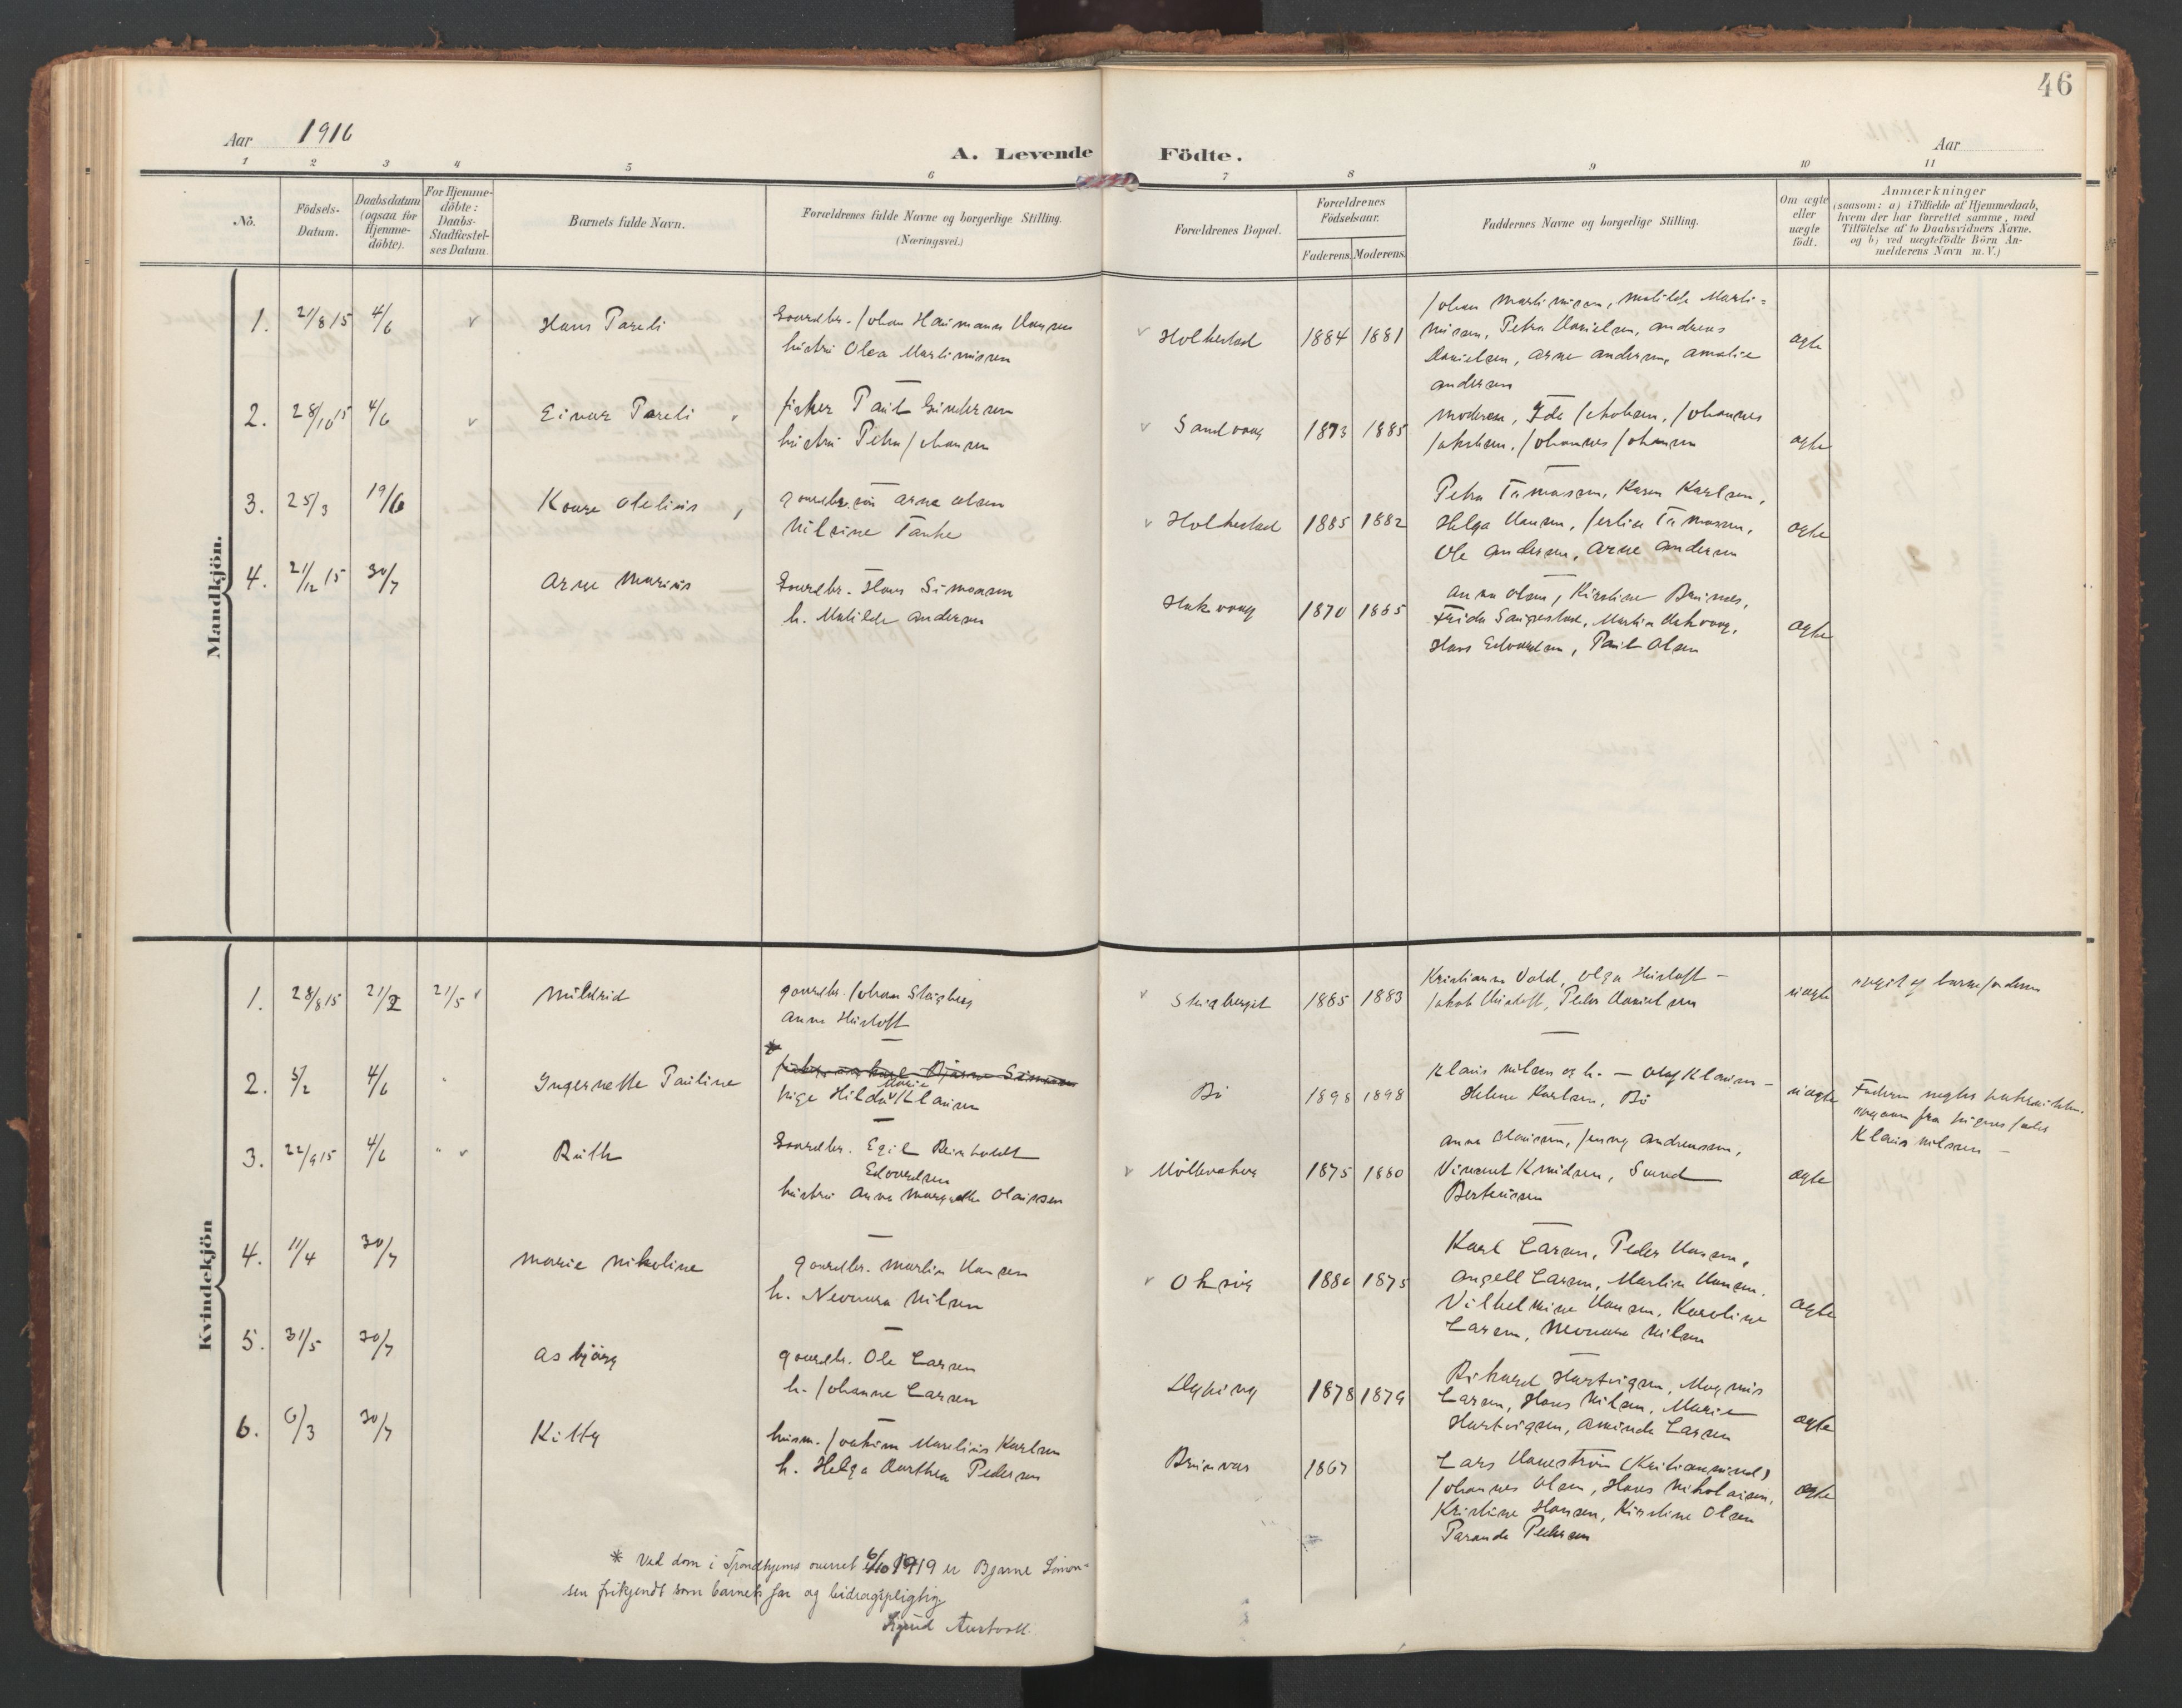 46
Aar 1916
A. Levende Födte.
Aar
1 2 3 4 5 6 7 8 9 10 11
No.
Födsels-Datum.
Daabsdatum (ogsaa for Hjemme-döbte).
For Hjemme-döbte: Daabs-Stadfæstel-ses Datum.
Barnets fulde Navn.
Forældrenes fulde Navne og borgerlige Stilling.
(Næringsvei.)
Forældrenes Bopæl.
Forældrenes Födselsaar.
Faderens. Moderens.
Faddernes Navne og borgerlige Stilling.
Om ægte eller uægte födt.
Anmærkninger
(saasom: a) i Tilfælde af Hjemmedaab, hvem der har forrettet samme, med Tilföielse af to Daabsvidners Navne. og b) ved uægtefödte Börn Anmelderens Navn m.V.)
Mandkjön.
1. 21/8 15 4/6 Hans Pareli
Gaardbr. Johan Hansen
hustru Olea Martinussen
Holkestad 1884 1881
Johan Martinussen, Matilde Marti-
nussen, Petra Danielsen, Andreas
Danielsen, Arne Andersen, Amalie
Andersen
ægte
2. 28/10 15 4/6 Einar Pareli
fisker Paul
hustru Petra Johansen
Sandvaag 1873 1885
Moderen, Ida Jakobsen, Johannes
Jakobsen, Johannes Johansen
ægte
3. 25/3 19/6 Kaare Olelius
gaardbr. sön Arne Olsen
Nilsine Tanke
Holkestad 1885 1882
Petra Tomassen, Karen Karlsen,
Helga Hansen, Tomassen,
Ole Andersen, Arne Andersen
ægte
4. 21/12 15 30/7 Arne Marius
Gaardbr. Hans Simonsen
h. Matilde Andersen
Hakvaag 1870 1865
Anna Olsen, Kirstine
Frida, Martin Hakvaag,
Hans Edvardsen, Paul Olsen
ægte
Kvindekjön
1. 28/8 15 21/2 21/5 Mildrid
gaardbr. Johan Skagberg
Anna Hustoft
Skagberget 1885 1883
Kristianna Vold, Olga Hustoft -
Jakob Hustoft, Peder Danielsen
uægte
opgit af barnefaderen
2. 5/2 4/6 Ingernette Pauline
* Karl Bjarne Simonsen
Pige Hilda Marie Klausen
Bö 1898 1898
Klaus Nilsen og h. - Olaf Klausen -
Helene Karlsen, Bö
uægte
Faderen negter paterniteten.
opgave fra pigens fader
Klaus Nilsen -
3. 22/9 15 4/6 Ruth
Gaardbr. Egil Reinholdt
Edvardsen
hustru Anna Margrethe Olaissen
1875 1880
Anna Olaissen, Jenny Andreassen,
Vincent Knudsen, Svend
Berteussen
ægte
4. 11/4 30/7 Marie Nikoline
gaardbr. Martin Hansen
h. Neonora Nilsen
Oksvig 1880 1875
Karl Larsen, Peder Hansen,
Angell Larsen, Martin Hansen.
Vilhelmine Hansen, Karoline
Larsen, Neonora Nilsen
ægte
5. 31/5 30/7 Asbjörg
gaardbr. Ole Larsen
h. Johanne Larsen
Dyping 1878 1879
Rikard Hartvigsen, Magnus
Larsen, Hans Nilsen, Marie
Hartvigsen, Aminda Larsen
ægte
6. 6/3 30/7 Kitty
husm. Joakim Marelius Karlsen
h. Helga Dorthea Pedersen
Brunvær 1867
Lars (Kristiansund)
Johannes Olsen, Hans Nikolaisen,
Kristine Hansen, Kirstine Olsen
Pedersen
ægte
* Ved dom i Trondhjems overret 6/10 1919 er Bjarne Simon-
sen frikjendt som barnets far og bidragspligtig
Sigurd Aurtvoll.